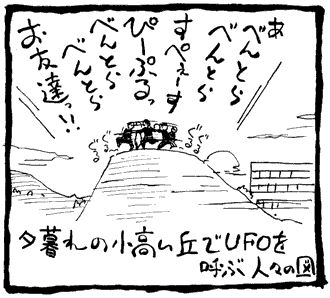 あ
べんとら
べんとら
すぺぇーす
ぴーぷるっ
べんとら
べんとら
お友達っ!!
ぐるぐる
ぐるぐる
夕暮れの小高い丘でUFOを
呼ぶ人々の図